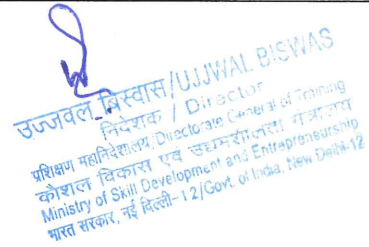 उज्जवल बिस्वास/UJJWAL BISWAS
निदेशक / Director
प्रशिक्षण महानिदेशालय/Directorate General of Training
कौशल विकास एवं उद्यमशीलता मंत्रालय
Ministry of Skill Development and Entrepreneurship
भारत सरकार, नई दिल्ली-12/Govt. of India, New Delhi-12